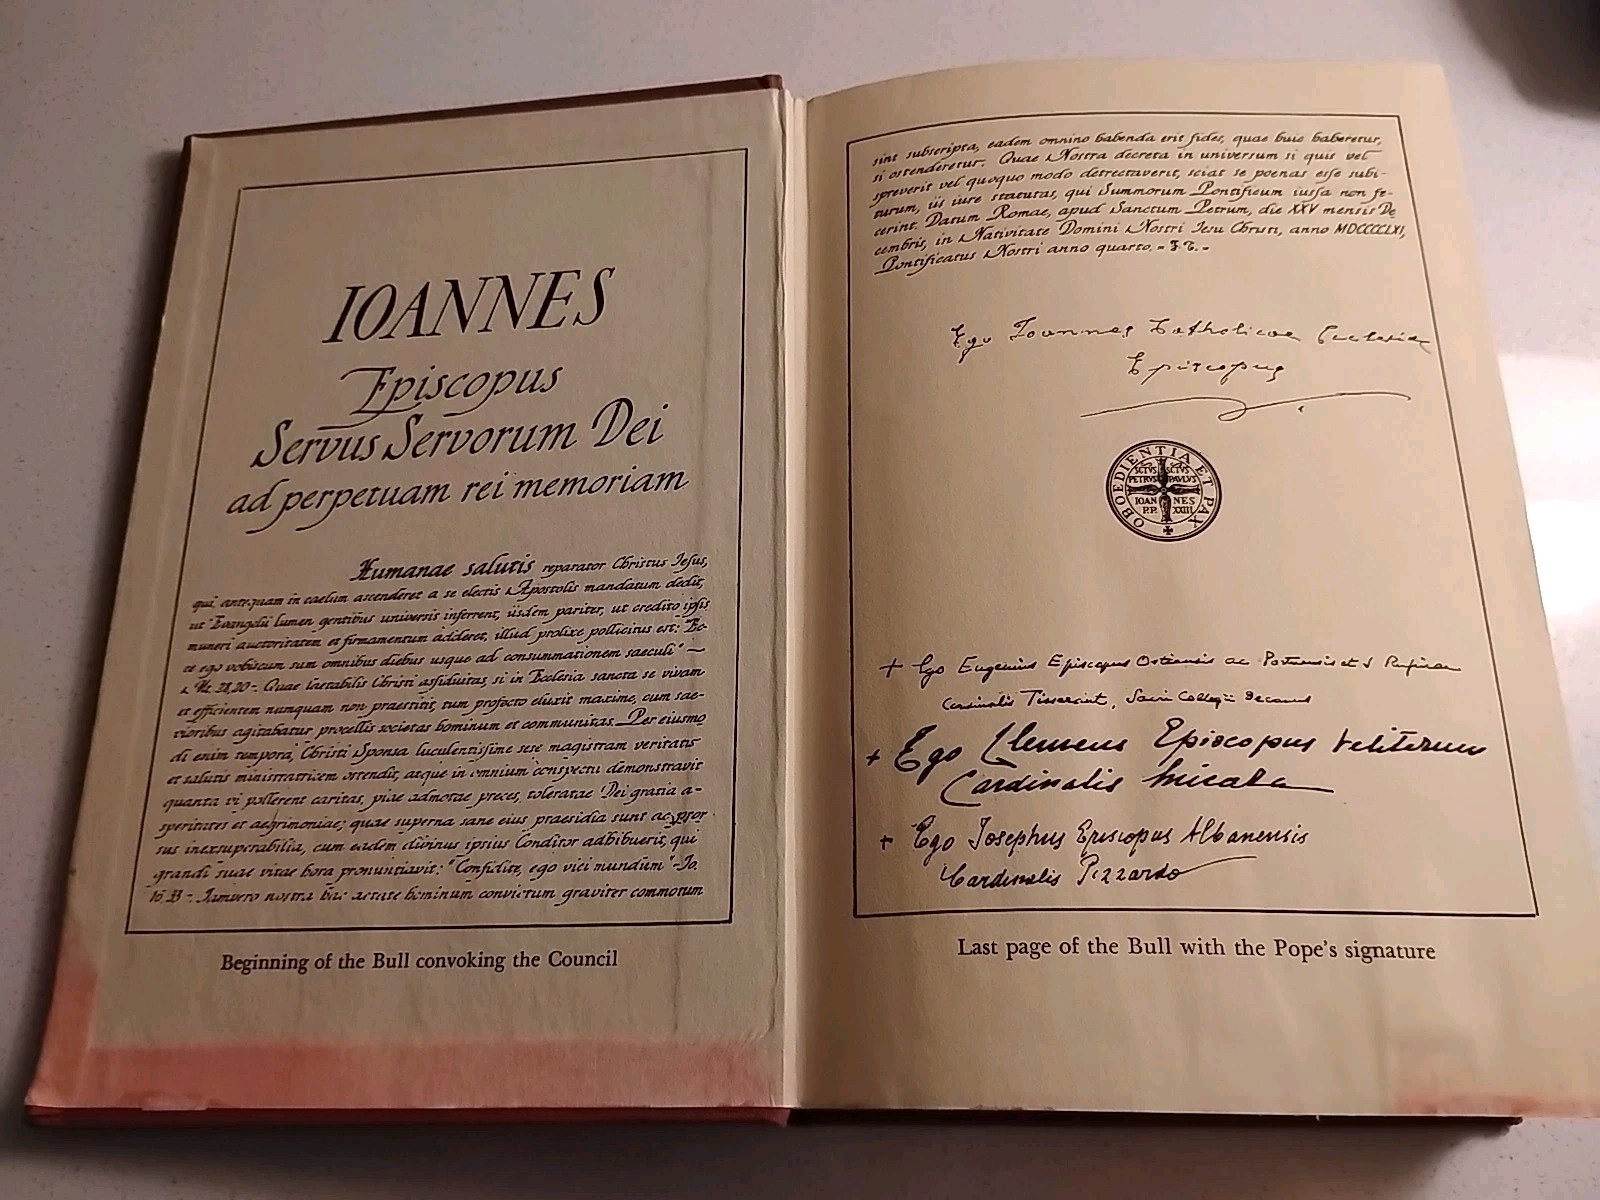 IOANNES
Episcopus
Servus Servorum Dei
ad perpetuam rei memoriam
Humanae salutis reparator Christus Iesus,
qui, antequam in caelum ascenderet a se electis Apostolis mandatum dedit,
ut Evangelii lumen gentibus universis inferrent, iisdem pariter, ut credito ipsis
muneri auctoritatem et firmamentum adderet, illud prolixe pollicitus est: "Ec-
ce ego vobiscum sum omnibus diebus usque ad consummationem saeculi" -
Mt. 28,20-. Quae laetabilis Christi assiduitas, si in Ecclesia sancta se vivam
et efficientem nunquam non praestitit, tum profecto eluxit maxime, cum sae-
vioribus agitabatur procellis societas hominum et communitas. Per eiusmo
di enim tempora, Christi Sponsa luculentissime sese magistram veritatis
et salutis ministratricem ostendit, atque in omnium conspectu demonstravit
quanta vi pollerent caritas, piae admotae preces, toleratae Dei gratia a-
speritates et aegrimoniae; quae superna sane eius praesidia sunt ac pror
sus inexsuperabilia, cum eadem divinus ipsius Conditor adhibuerit, qui
grandi suae vitae hora pronuntiavit: "Confidite, ego vici mundum" -Io.
16.33-. Iamvero nostra hac aetate hominum convictum graviter commotum
Beginning of the Bull convoking the Council
sint subscripta, eadem omnino habenda erit fides, quae huic haberetur,
si ostenderetur. Quae Nostra decreta in universum si quis vel
spreverit vel quoquo modo detrectaverit, sciat se poenas esse subi-
turum, iis iure statutas, qui Summorum Pontificum iussa non fe-
cerint. Datum Romae, apud Sanctum Petrum, die XXV mensis De
cembris, in Nativitate Domini Nostri Iesu Christi, anno MDCCCCLXI,
Pontificatus Nostri anno quarto. - F.T. -
Ego Ioannes Catholicae Ecclesiae
Episcopus
OBOEDIENTIA ET PAX
SCTVS SCTVS
PETRVS PAVLVS
IOAN NES
P.P. XXIII
+ Ego Eugenius Episcopus Ostiensis ac Portuensis et S. Rufinae
Cardinalis Tisserant, Sacri Collegii Decanus
+ Ego Clemens Episcopus Veliternus
Cardinalis Micara
+ Ego Josephus Episcopus Albanensis
Cardinalis Pizzardo
Last page of the Bull with the Pope's signature